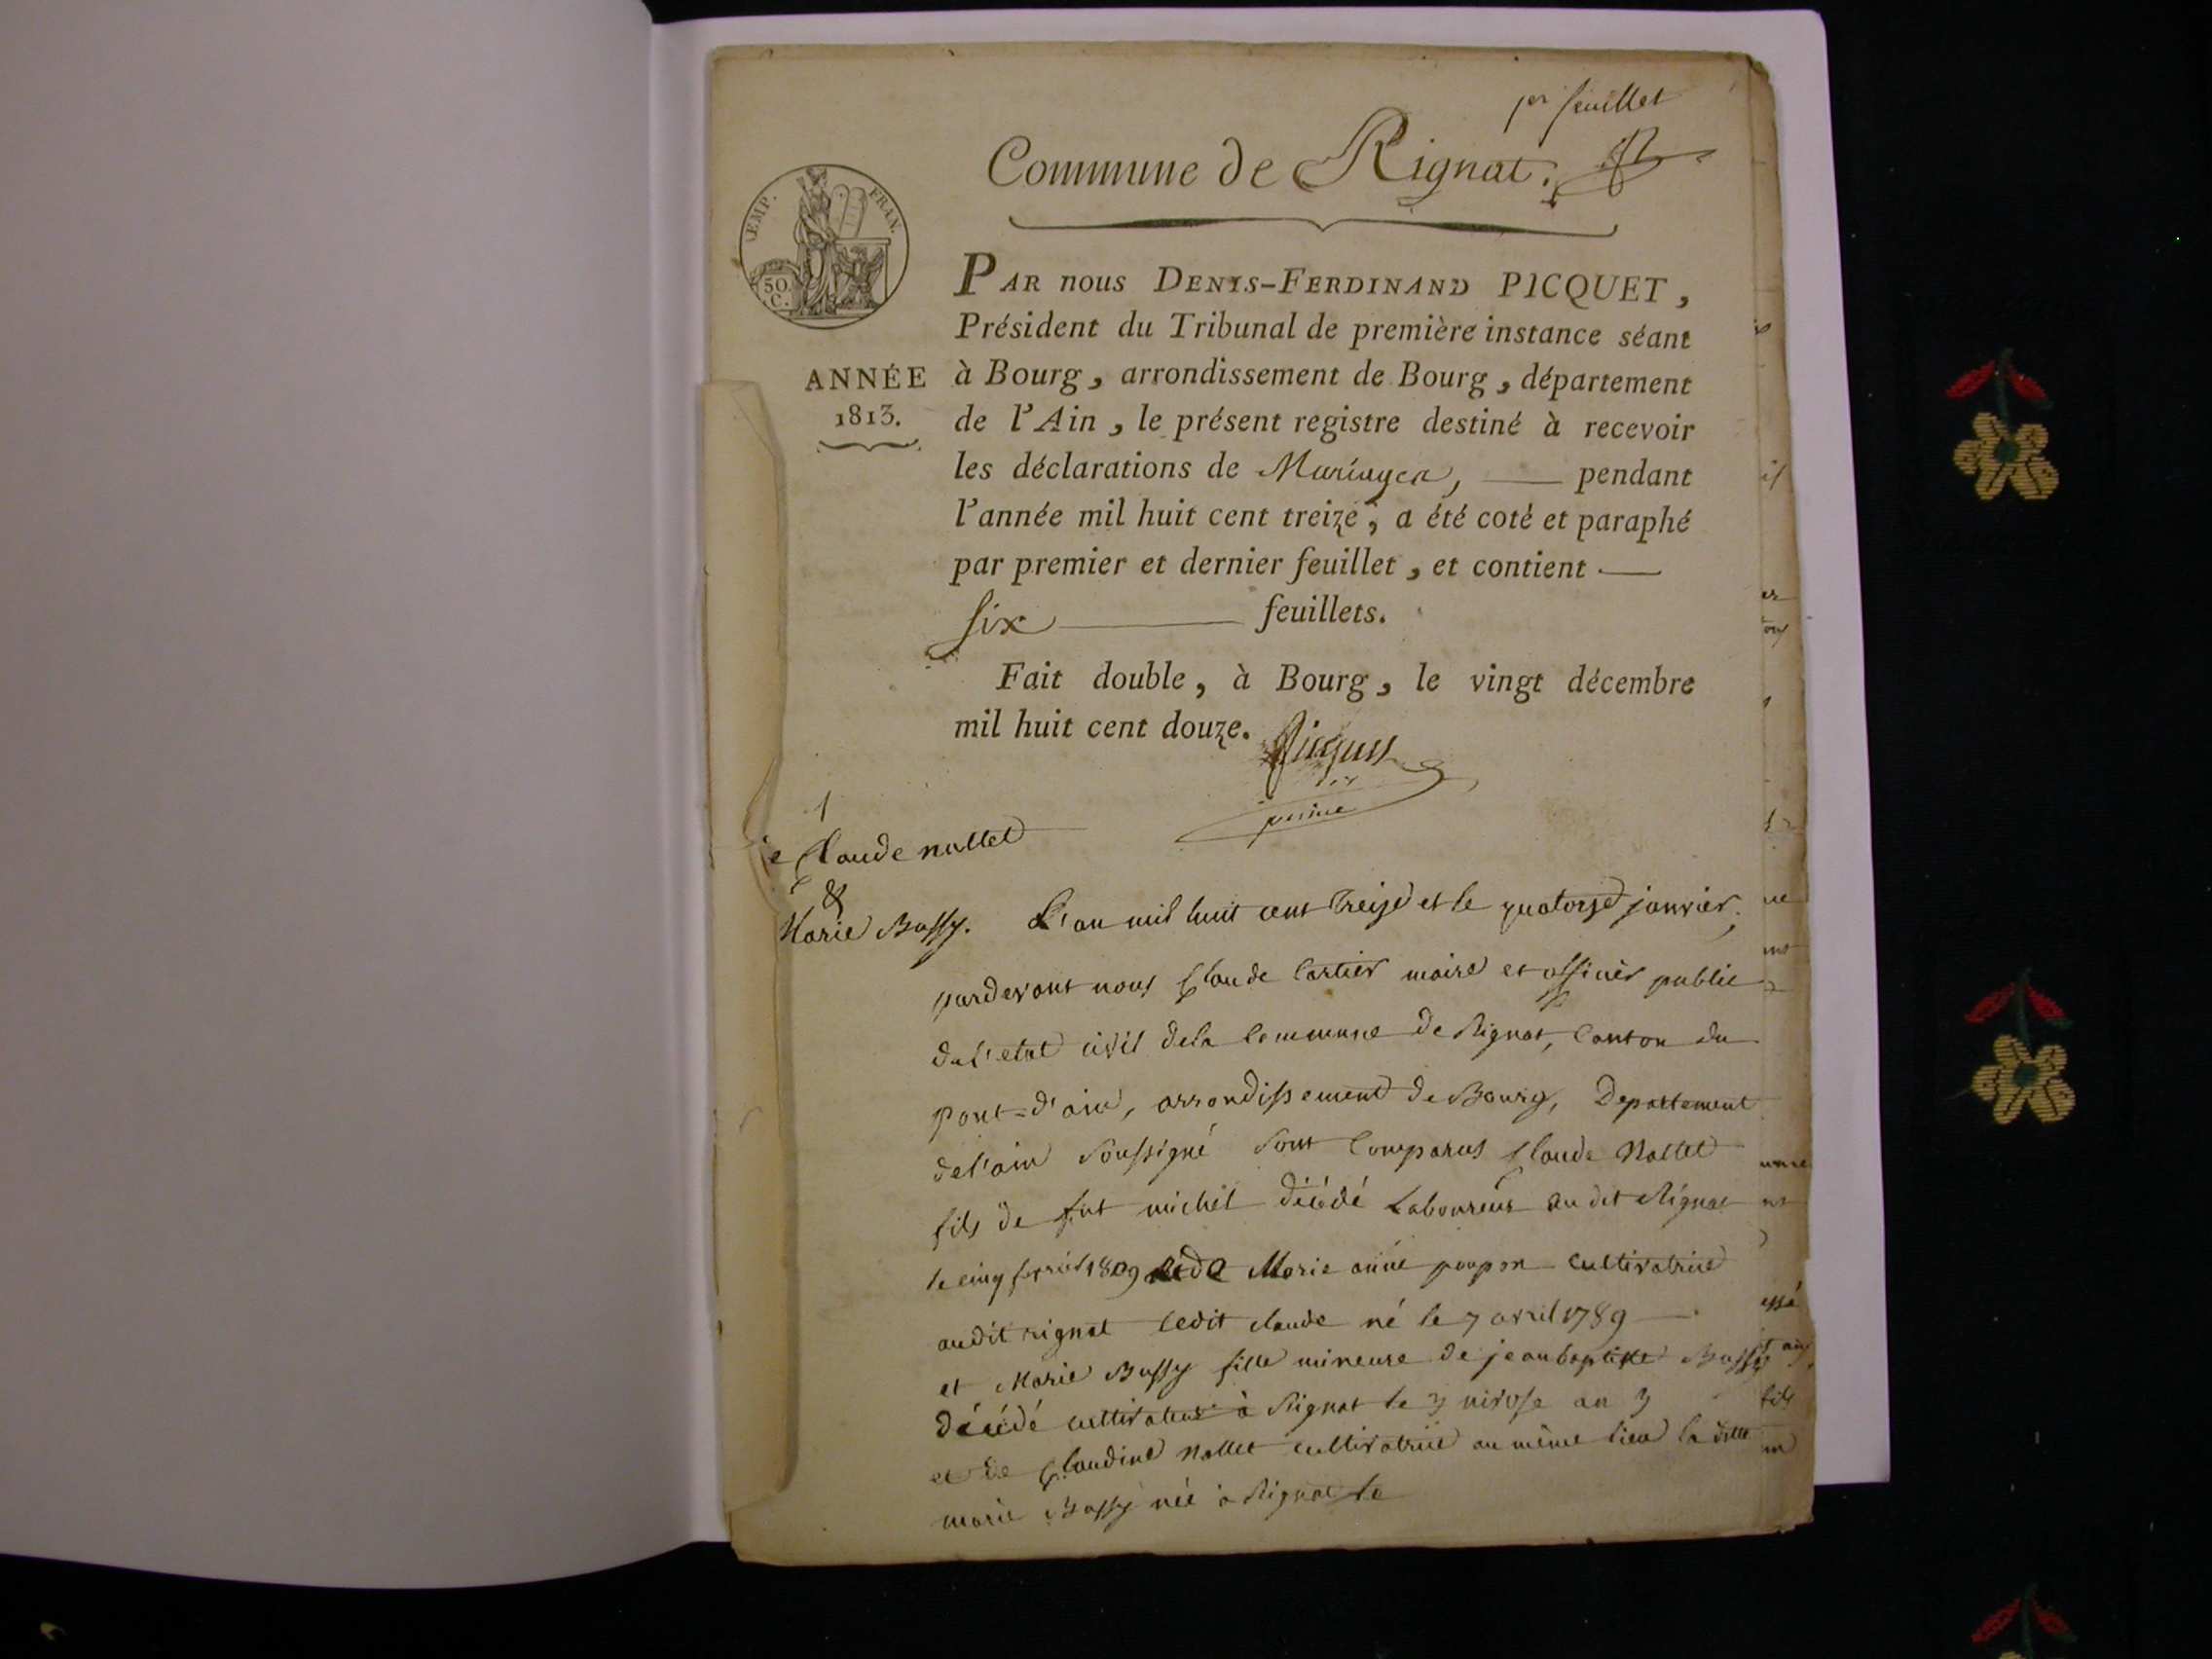 1er feuillet
Commune de Rignat.
EMP. FRAN.
50.
C.
PAR nous DENIS-FERDINAND PICQUET,
Président du Tribunal de première instance séant
ANNÉE
1813.
à Bourg, arrondissement de Bourg, département
de l'Ain, le présent registre destiné à recevoir
les déclarations de Mariages, pendant
l'année mil huit cent treize, a été coté et paraphé
par premier et dernier feuillet, et contient
six feuillets.
Fait double, à Bourg, le vingt décembre
mil huit cent douze.
Picquet
1
Claude nallet
&
Marie Bussy.
L'an mil huit cent treize et le quatorze janvier,
pardevant nous Claude Cartier maire et officier public
de l'etat civil dela Commune de Rignat, Canton du
pont=d'ain, arrondissement de Bourg, Departement
de l'ain Soussigné Sont Comparus Claude Nallet
fils de fut michel décédé Laboureur au dit Rignat
le cinq fevrier 1809 Marie anne poupon Cultivatrice
audit rignat Ledit claude né le 7 avril 1789
et Marie Bussy fille mineure de jean baptiste Bussy
décédé cultivateur à Rignat le 3 nivose an 3
et de Claudine Nallet cultivatrice au même lieu la ditte
marie Bussy née à Rignat le